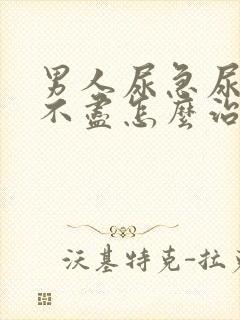 男人尿急尿
不盡怎麼治
沃基特克-拉